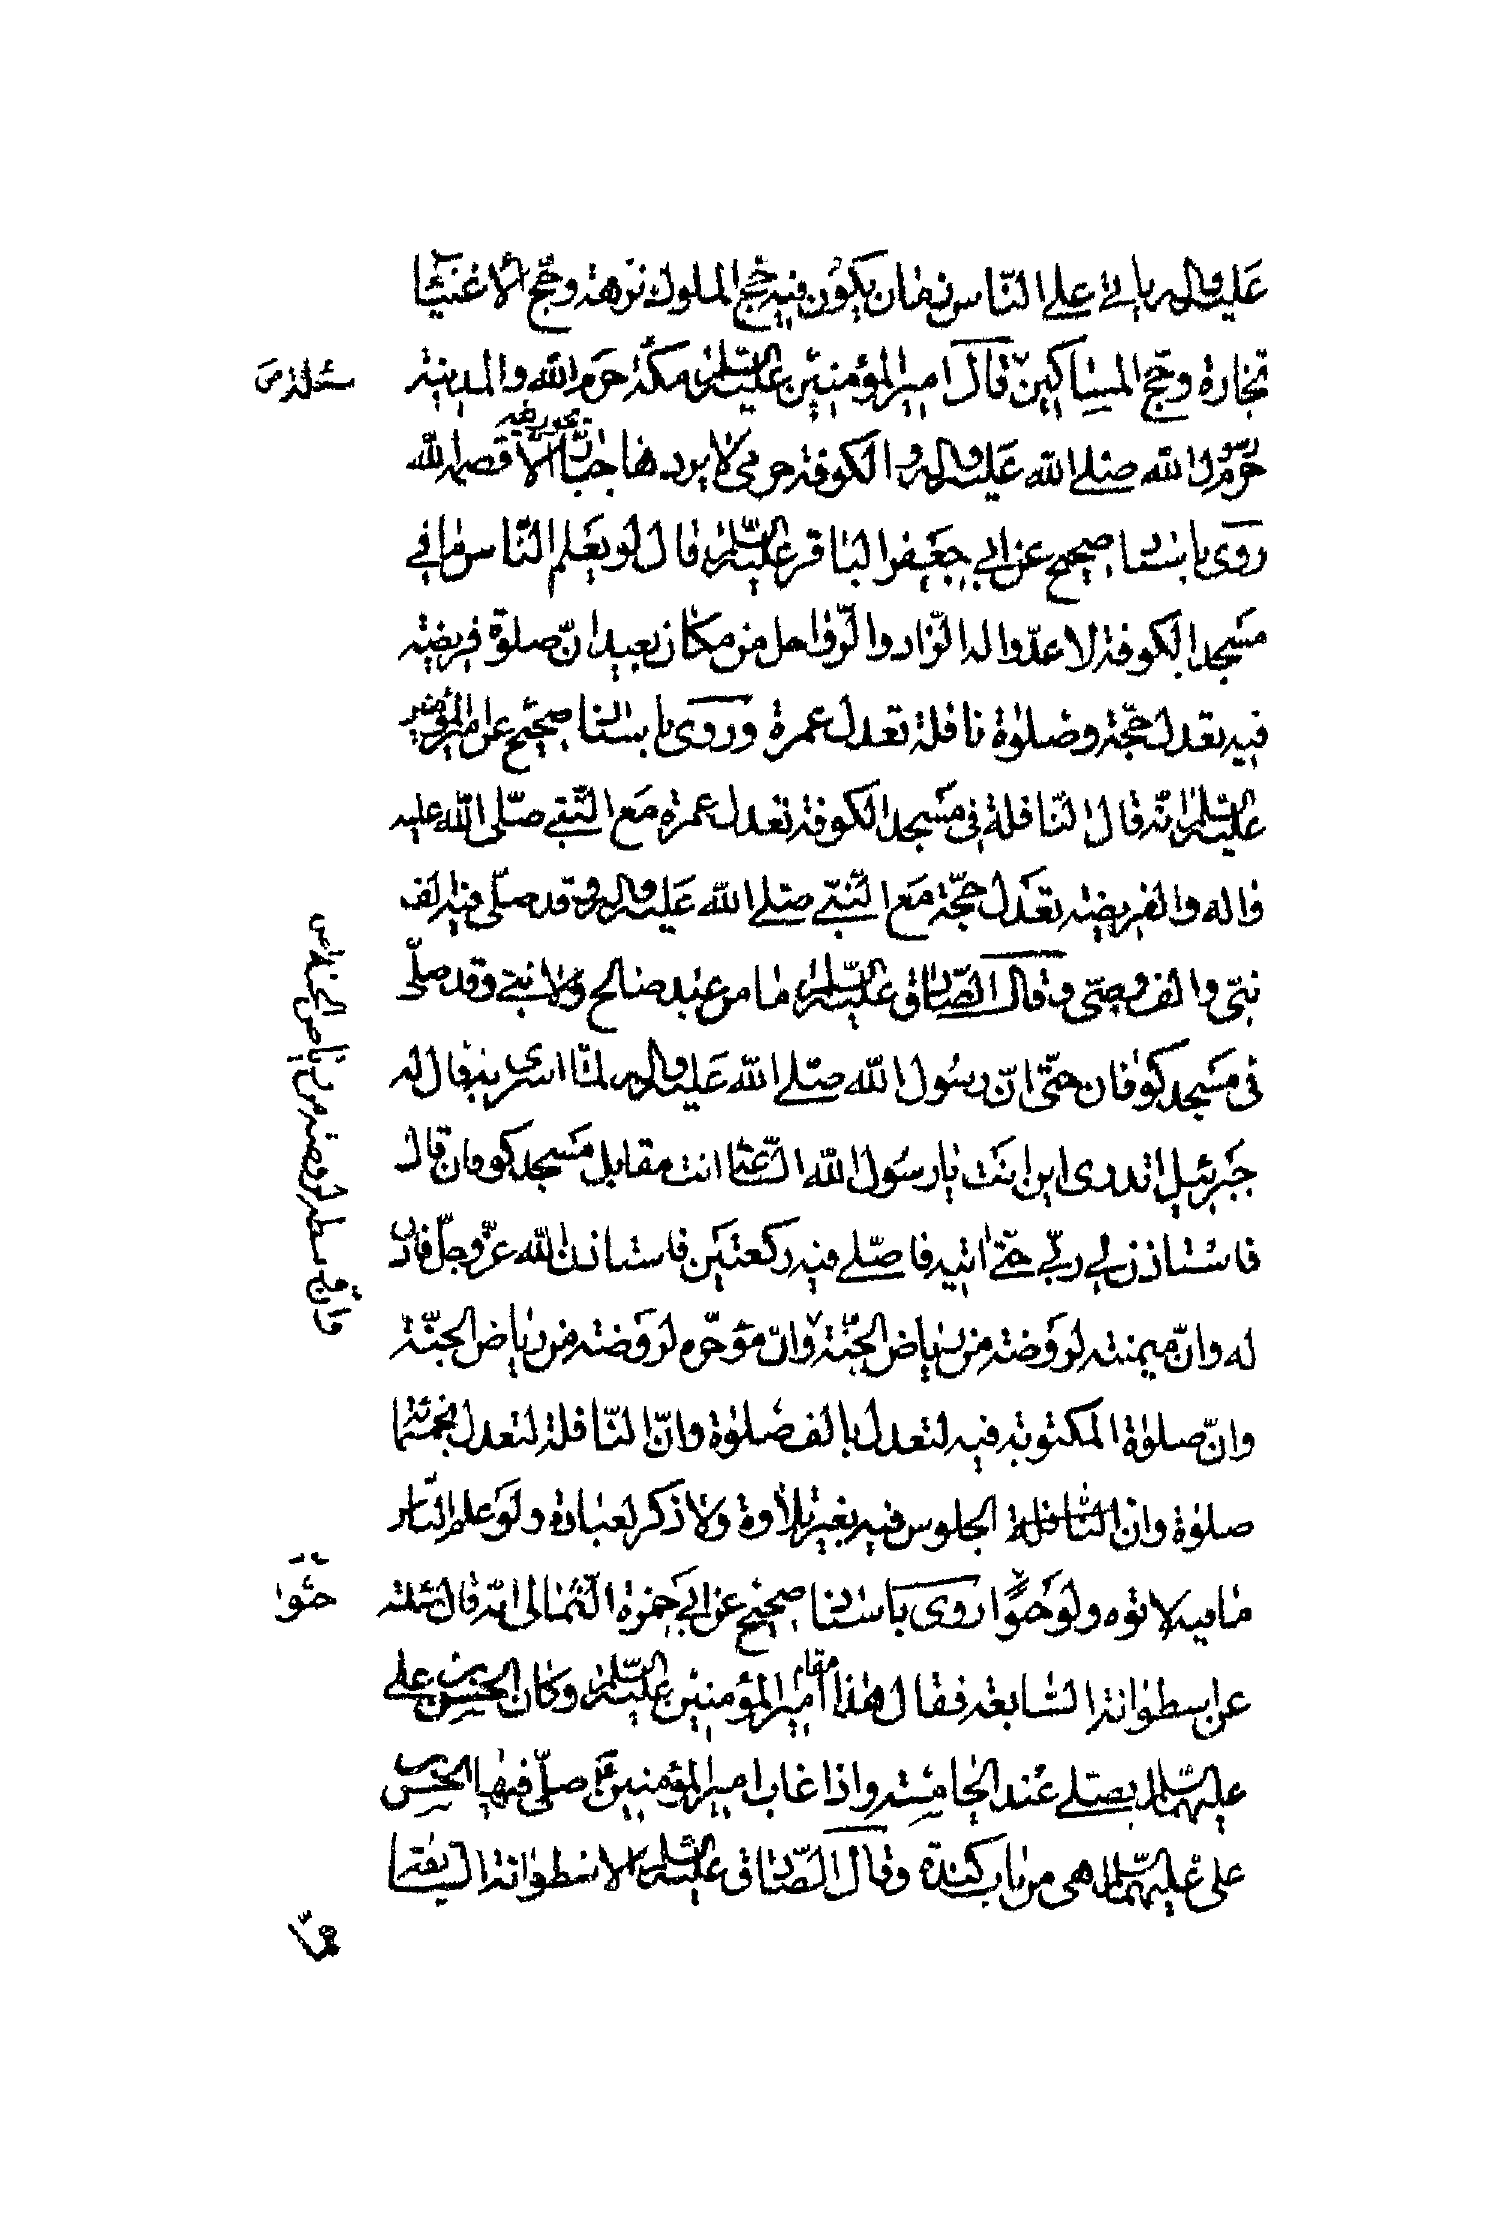 عليه واله ياتي على النّاس زمان يكون فيه حجّ الملوك نزهة وحجّ الاغنياء
تجارة وحجّ المساكين قال امير المؤمنين عليه السّلام مكّة حرم الله والمدينة
مسئلة من
حرم رسول الله صلى الله عليه واله والكوفة حرمي لا يردها جبّار الا قصمه الله
يجور فيه
روى باسناد صحيح عن ابي جعفر الباقر عليه السّلام قال لو يعلم النّاس ما في
مسجد الكوفة لاعدّوا له الزّاد والرّواحل من مكان بعيد انّ صلوة فريضة
فيه تعدل حجّة وصلوة نافلة تعدل عمرة وروى باسناد صحيح عن امير المؤمنين
عليه السّلام انّه قال النّافلة في مسجد الكوفة تعدل عمرة مع النّبي صلّى الله عليه
واله والفريضة تعدل حجّة مع النّبيّ صلى الله عليه واله وقد صلّى فيه الف
نبيّ والف وصيّ وقال الصّادق عليه السّلام ما من عبد صالح ولا نبيّ وقد صلّى
في مسجد كوفان حتّى انّ رسول الله صلى الله عليه واله لمّا اسرى به قال له
جبرئيل اتدرى اين انت يا رسول الله السّاعة انت مقابل مسجد كوفان قال
فاستاذن لي ربّي حتّى اتيه فاصّلي فيه ركعتين فاستاذن الله عزّ وجلّ فاذن
له وانّ ميمنته لروضة من رياض الجنّة وانّ مؤخّره لروضة من رياض الجنّة
وان وسطه لروضة من رياض الجنة س
وانّ صلوة المكتوبة فيه لتعدل بالف صلوة وانّ النّافلة لتعدل بخمسمائة
صلوة وان النّافلة الجلوس فيه بغير تلاوة ولا ذكر لعبادة ولو علم النّاس
ما فيه لاتوه ولو حبوًا روى باسناد صحيح عن ابي حمزة الثّمالى انّه قال سئلته
حبوا
عن اسطوانة السّابعة فقال هذا مقام امير المؤمنين عليه السّلام وكان الحسن بن علي
عليهما السّلام يصلى عند الخامسة واذا غاب امير المؤمنين ع صلّى فيها الحسن بن
على عليهما السّلام هى من باب كندة وقال الصّادق عليه السّلام الاسطوانة السّابعة
ممّا